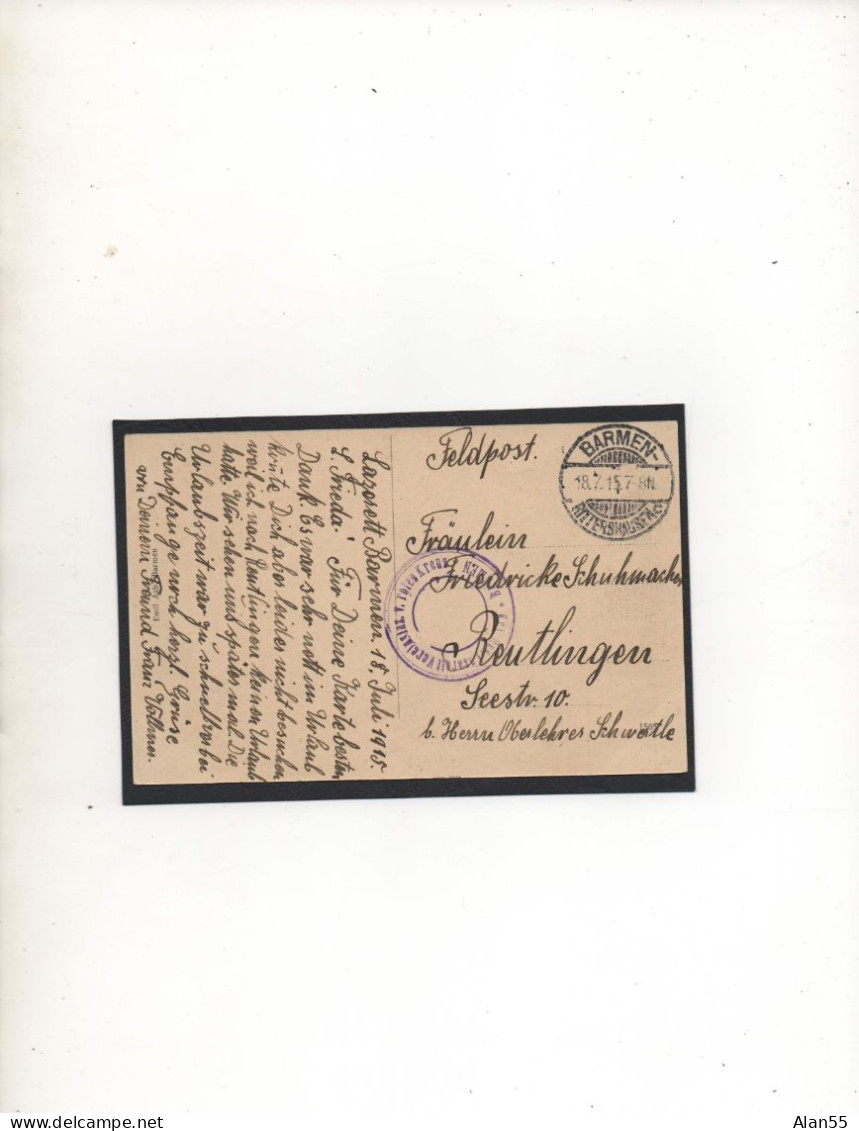 Lazarett Barmen, 18. Juli 1915.
L. Frieda! Für Deine Karte besten
Dank. Es war sehr nett im Urlaub
konte Dich aber leider nicht besuchen
weil ich nach Reutlingen keinen Urlaub
hatte. Wir sehen uns später mal. Die
Urlaubszeit war zu schnell vorbei
Empfange noch herzl. Grüse
von Deinem Freund Franz Vollmer.
Feldpost.
BARMEN-
18.7.15.7-8N.
RITTERSHAUSEN
Fräulein
Friedricke Schuhmacher
Reutlingen
Seestr. 10.
b. Herrn Oberlehrer Schwertle
v. roten Kreuz
BARMEN
Alan55